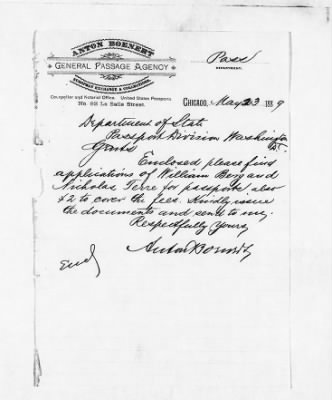 ANTON BOENERT
GENERAL PASSAGE AGENCY
FOREIGN EXCHANGE & COLLECTIONS.
Counsellor and Notarial Office. United States Passports
No. 92 La Salle Street.
Pass
DEPARTMENT.
CHICAGO, May 23 1889
Department of State
Passport Division Washington
Gents
Enclosed please find
applications of William Berg and
Nicholas Terre for passports also
$2 to cover the fees. Kindly issue
the documents and send to me.
Respectfully Yours
Anton Boenert
Encl